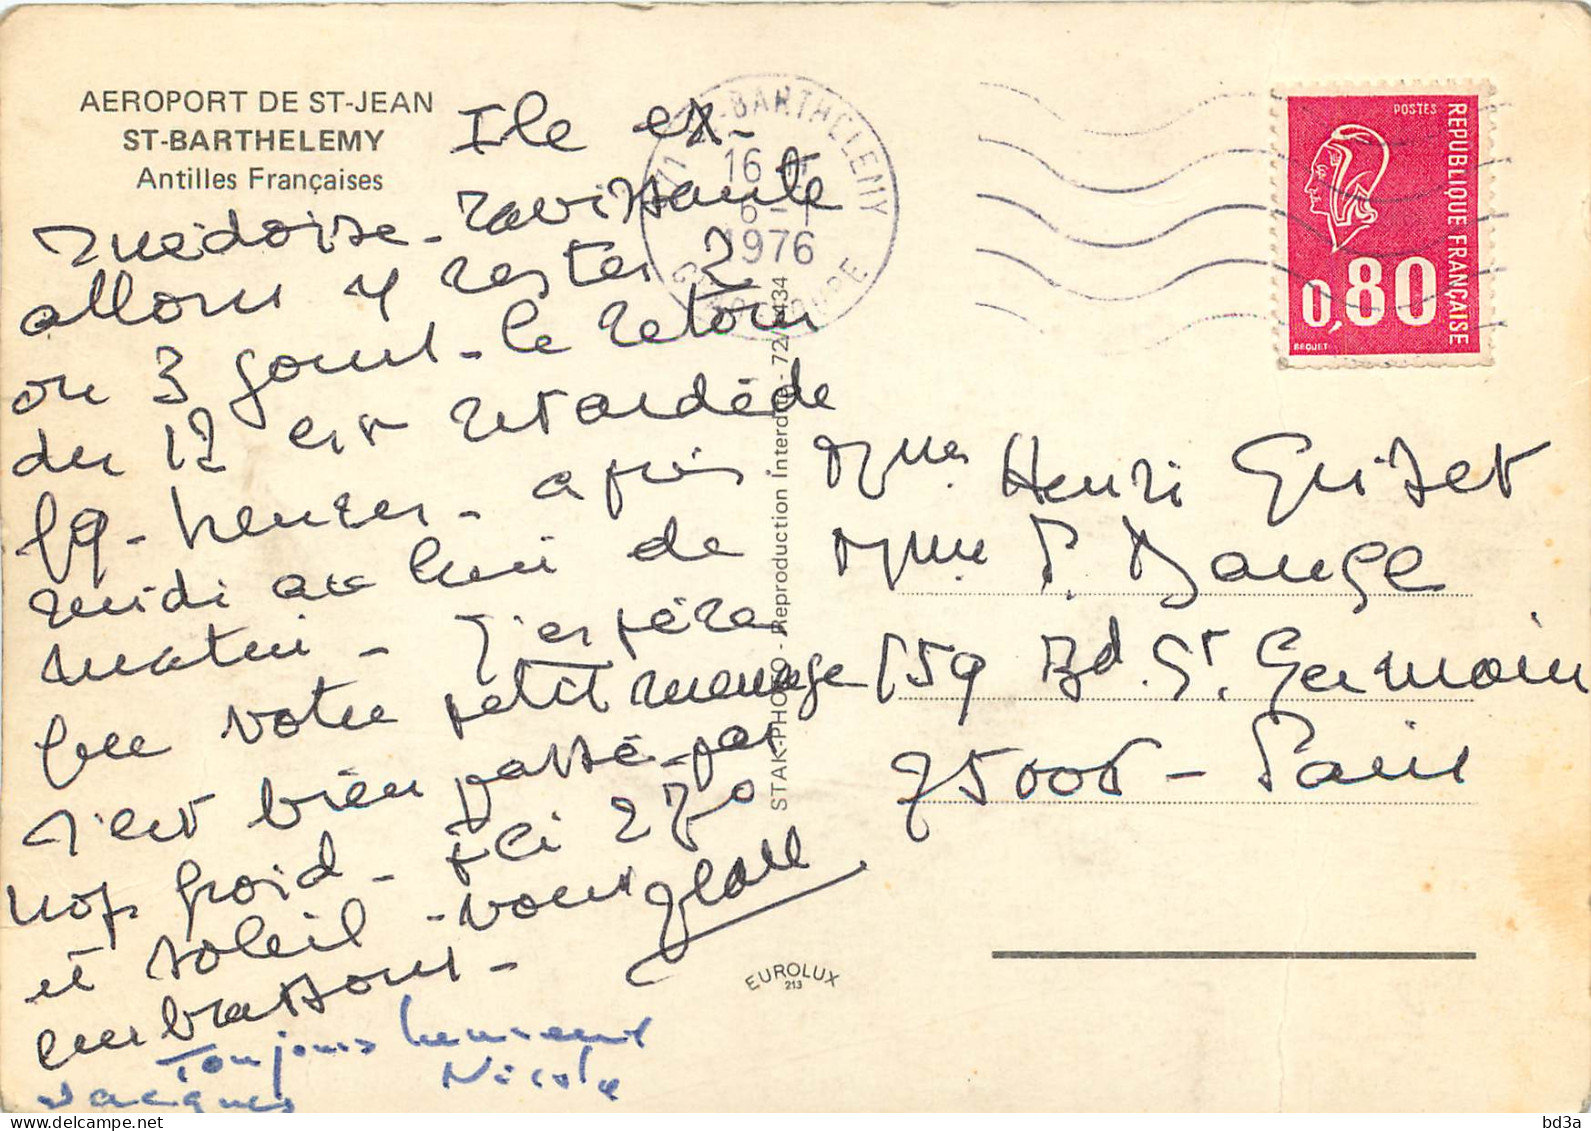 AEROPORT DE ST-JEAN
ST-BARTHELEMY
Antilles Françaises
Ile ex-
suédoise - ravissante
allons y rester 2
ou 3 jours - le retour
du 12 est retardé de
19 - heures - après
midi au lieu de
matin - J'espère
que votre petit
s'est bien passé - pas
trop froid - ici 270
et soleil - vous
embrassons -
Toujours heureux
Jacques Nicole
ST-BARTHELEMY
16
6 - 1
1976
GUADELOUPE
STAK-PHOTO - Reproduction Interdite - 72/
POSTES
REPUBLIQUE FRANÇAISE
0,80
BEQUET
Mme Henri Grizet
Mme P. Dauge
159 Bd. St. Germain
75006 - Paris
EUROLUX
213
bd3a